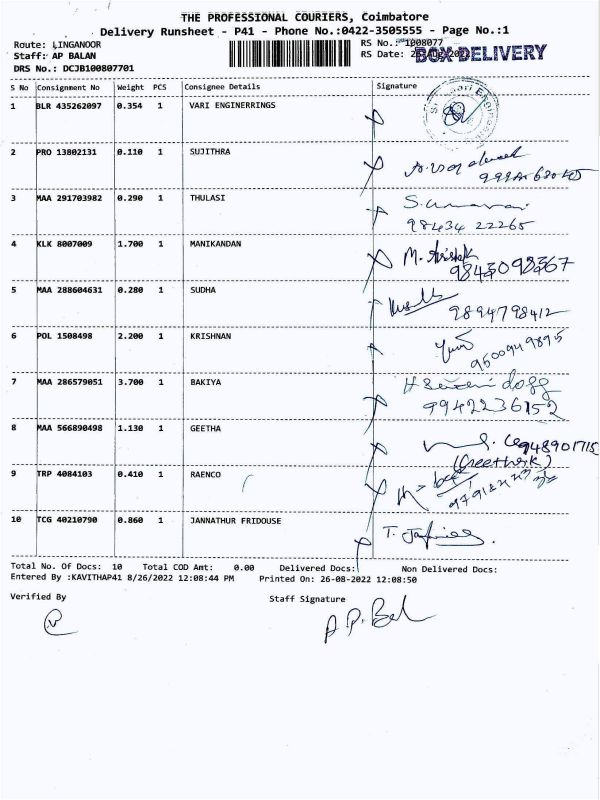 THE PROFESSIONAL COURIERS, Coimbatore
Delivery Runsheet - P41 - Phone No.:0422-3505555 - Page No.:1
Route: LINGANOOR
Staff: AP BALAN
DRS No.: DCJB100807701
RS No.: 1008077
RS Date: 26-Aug-2022
BOX DELIVERY
S No Consignment No Weight PCS Consignee Details Signature
1 BLR 435262097 0.354 1 VARI ENGINERRINGS
2 PRO 13802131 0.110 1 SUJITHRA
3 MAA 291703982 0.290 1 THULASI
98434 22265
4 KLK 8007009 1.700 1 MANIKANDAN
98430 98367
5 MAA 288604631 0.280 1 SUDHA
9894798412
6 POL 1508498 2.200 1 KRISHNAN
9500949895
7 MAA 286579051 3.700 1 BAKIYA
9942236152
8 MAA 566890498 1.130 1 GEETHA
948901715
(Geethak)
9 TRP 4084103 0.410 1 RAENCO
10 TCG 40210790 0.860 1 JANNATHUR FRIDOUSE
Total No. Of Docs: 10 Total COD Amt: 0.00 Delivered Docs: Non Delivered Docs:
Entered By :KAVITHAP41 8/26/2022 12:08:44 PM Printed On: 26-08-2022 12:08:50
Verified By Staff Signature
A.P. Bal